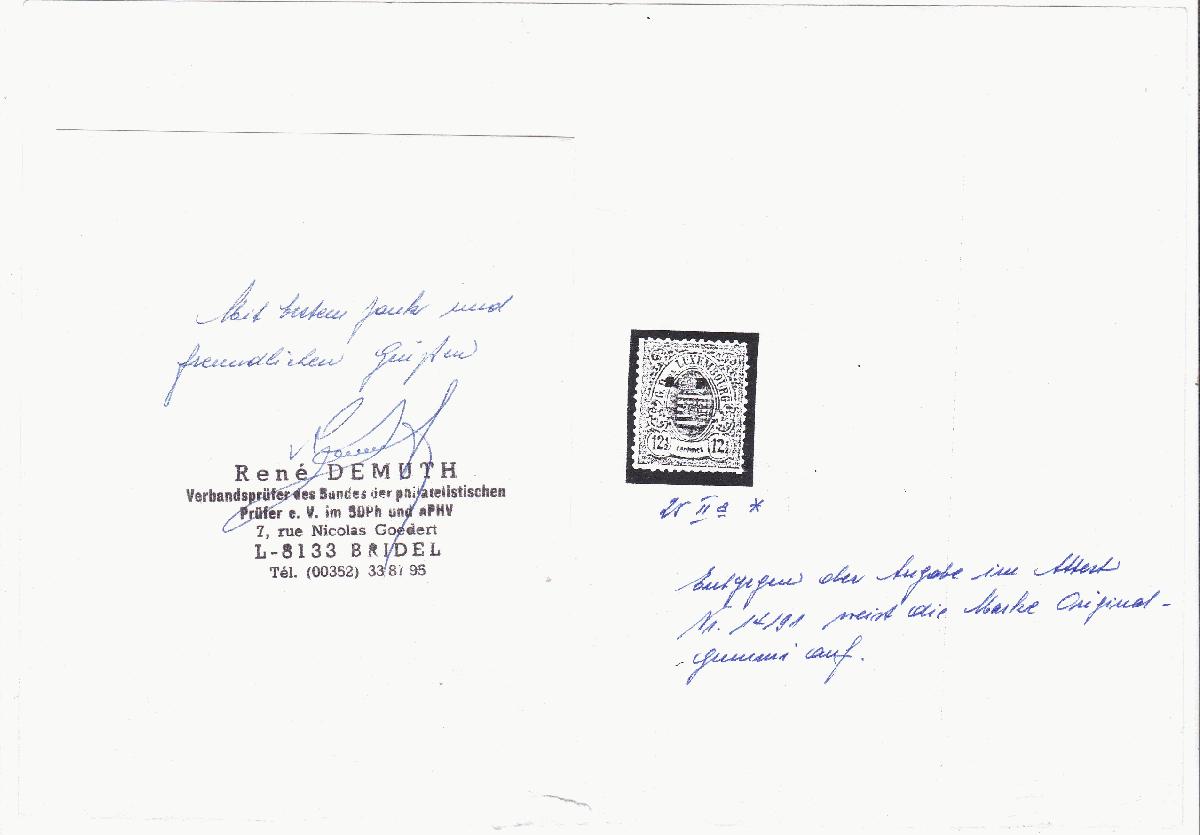 Mit bestem Dank und
freundlichen Grüßen
René DEMUTH
Verbandsprüfer des Bundes der philatelistischen
Prüfer e. V. im BDPh und APHV
7, rue Nicolas Goedert
L-8133 BRIDEL
Tél. (00352) 33 81 95
G. D. DE LUXEMBOURG
12½ CENTIMES 12½
25 II a *
Entgegen der Angabe im Attest
Nr. 14191 weist die Marke Original-
gummi auf.